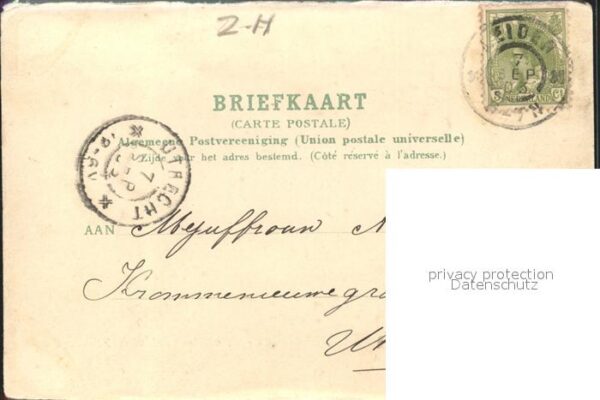 Z-H
LEIDEN
7
SEP
NEDERLAND
BRIEFKAART
(CARTE POSTALE)
Algemeene Postvereeniging (Union postale universelle)
Zijde voor het adres bestemd. (Côté réservé à l'adresse.)
UTRECHT
7
AAN Mejuffrouw
Krommenieuwegra
Ut
privacy protection
Datenschutz